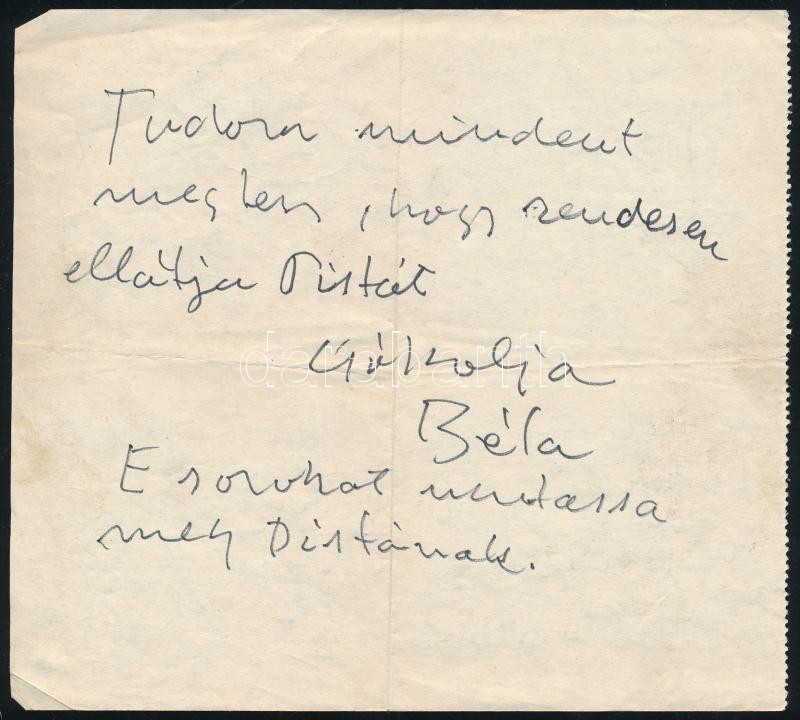 Tudora mindent
megtesz, hogy rendesen
ellátja Pistát
Csókolja
Béla
E sorokat mutassa
meg Pistának.
darabanth